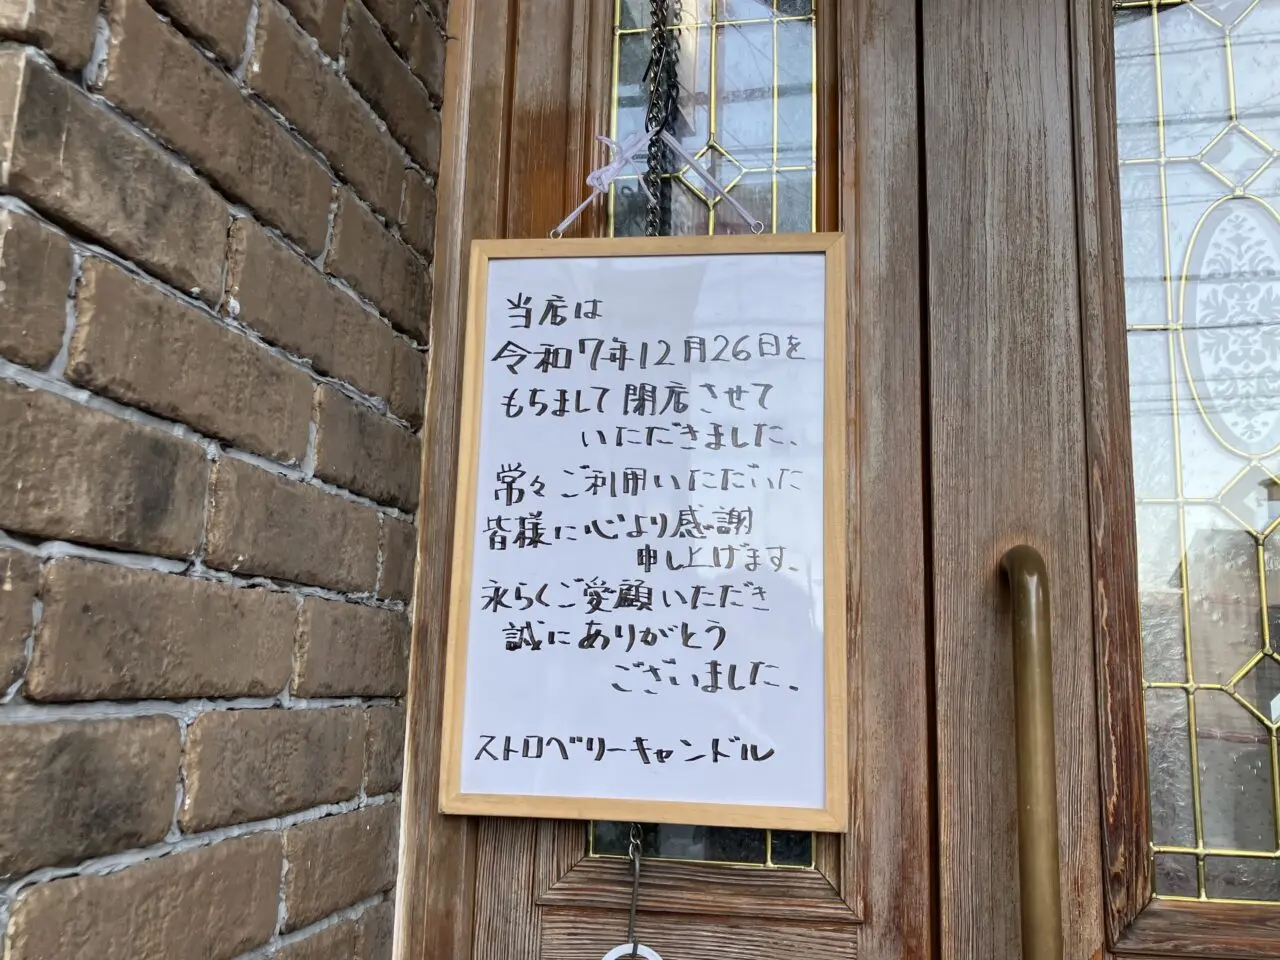 当店は
令和7年12月26日を
もちまして閉店させて
いただきました、
常々ご利用いただいた
皆様に心より感謝
申し上げます、
永らくご愛顧いただき
誠にありがとう
ございました、
ストロベリーキャンドル